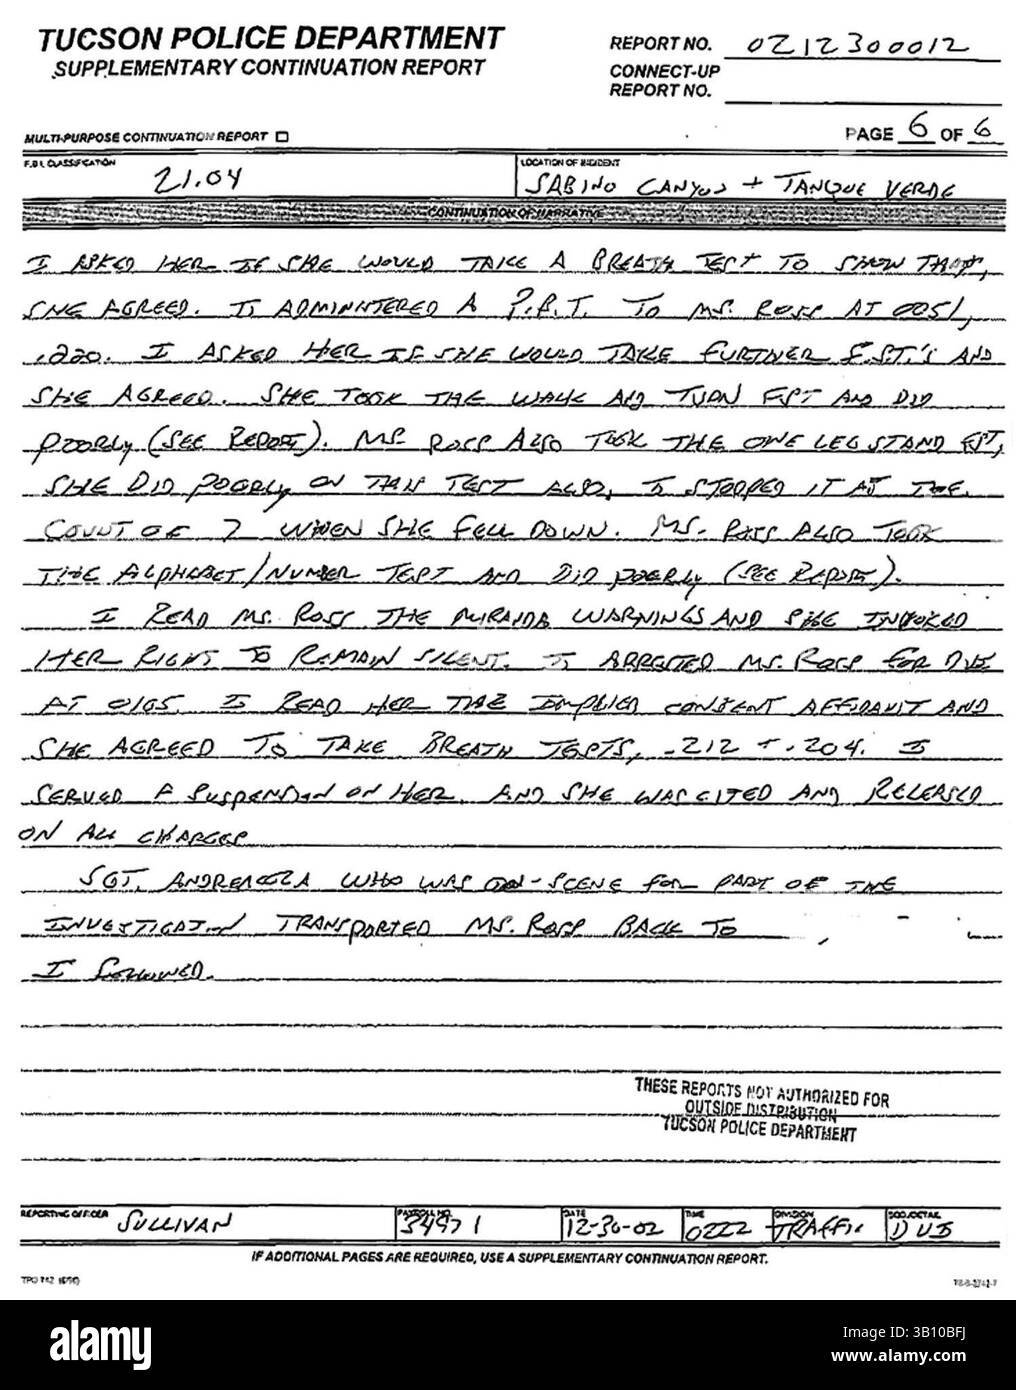 TUCSON POLICE DEPARTMENT
SUPPLEMENTARY CONTINUATION REPORT
REPORT NO. 0212300012
CONNECT-UP
REPORT NO.
MULTI-PURPOSE CONTINUATION REPORT
PAGE 6 OF 6
F.B.I. CLASSIFICATION
21.04
LOCATION OF INCIDENT
SABINO CANYON + TANQUE VERDE
CONTINUATION OF NARRATIVE
I ASKED HER IF SHE WOULD TAKE A BREATH TEST TO SHOW THAT,
SHE AGREED. I ADMINISTERED A P.B.T. TO MS. ROSS AT 0051,
.220. I ASKED HER IF SHE WOULD TAKE FURTHER F.S.T.'S AND
SHE AGREED. SHE TOOK THE WALK AND TURN FST AND DID
POORLY (SEE REPORT). MS. ROSS ALSO TOOK THE ONE LEG STAND FST,
SHE DID POORLY ON THIS TEST ALSO, I STOPPED IT AT THE
COUNT OF 7 WHEN SHE FELL DOWN. MS. ROSS ALSO TOOK
THE ALPHABET/NUMBER TEST AND DID POORLY (SEE REPORT).
I READ MS. ROSS THE MIRANDA WARNINGS AND SHE INVOKED
HER RIGHT TO REMAIN SILENT. I ARRESTED MS. ROSS FOR DUI
AT 0105. I READ HER THE IMPLIED CONSENT AFFIDAVIT AND
SHE AGREED TO TAKE BREATH TESTS, .212 + .204. I
SERVED A SUSPENSION ON HER. AND SHE WAS CITED AND RELEASED
ON ALL CHARGES
SGT. WHO WAS ON-SCENE FOR PART OF THE
INVESTIGATION TRANSPORTED MS. ROSS BACK TO
I FOLLOWED.
THESE REPORTS NOT AUTHORIZED FOR
OUTSIDE DISTRIBUTION
TUCSON POLICE DEPARTMENT
REPORTING OFFICER
SULLIVAN
PAYROLL NO.
34971
DATE
12-30-02
TIME
0222
DIVISION
TRAFFIC
SQD./DETAIL
DUI
IF ADDITIONAL PAGES ARE REQUIRED, USE A SUPPLEMENTARY CONTINUATION REPORT.
alamy
Image ID: 3B10BFJ
www.alamy.com